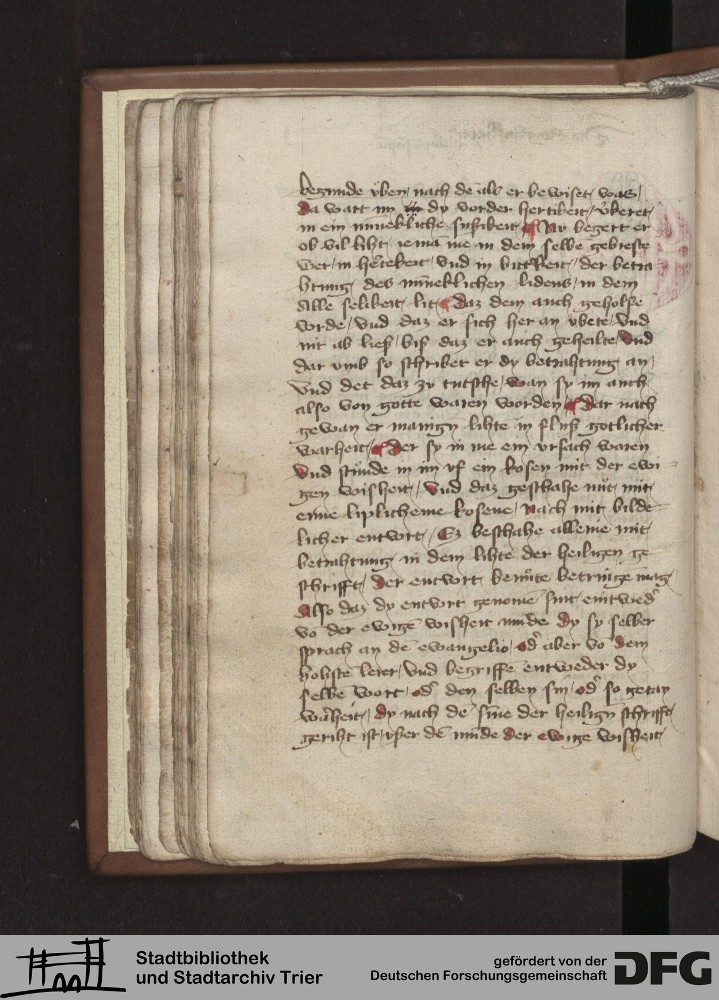 begunde üben / nach dē als er bewiset was /
Da wart im dy vorder hertikeit / v̈keret /
in ein mīneklichē susikeit / Nu begert er
ob vil liht / iemā me in dem selbē gebreste
wer / in hertekeit / vnd in bitt'keit / der betra
htung des mīneklichen lidens / in dem
Alle selikeit lit / daz dem auch geholfē
vorde / vnd daz er sich her an v̈bete / vnd
nit ab lieſ / biſ daz er auch geheilte / vnd
dar vmb so schribet er dy betrahtung an /
vnd det daz zu tutsche / wan sy im auch
also von gotte waren worden Dar nach
gewan er manign lihtē in fluſ gotlicher
warheit / Der sy in me ein vrsach waren
Vnd stūnde in im vf ein kosen mit der ewi
gen wisheit / Vnd daz geschahe nüt mit
eime liplicheme kosene / Nach mit bilde
licher entwort / Ez beschahe alleine mit
betrahtung in dem lihtē der heiligen ge
schrifft / Der entwort benüte betriige mag
Also daz dy entwort genomē sint eintwed'
vō der ewigē wisheit munde dy sy selber
sprach an dē ewangelio / od' aber vō dem
hohstē lerer / Vnd begriffē entweder dy
selbē wort / od' den selben sin / od' so getan
waheit / dy nach dē sīne der heilign schrifft
geriht ist / vſer dē mūnde der ewigē wisheit
Stadtbibliothek
und Stadtarchiv Trier
gefördert von der
Deutschen Forschungsgemeinschaft
DFG